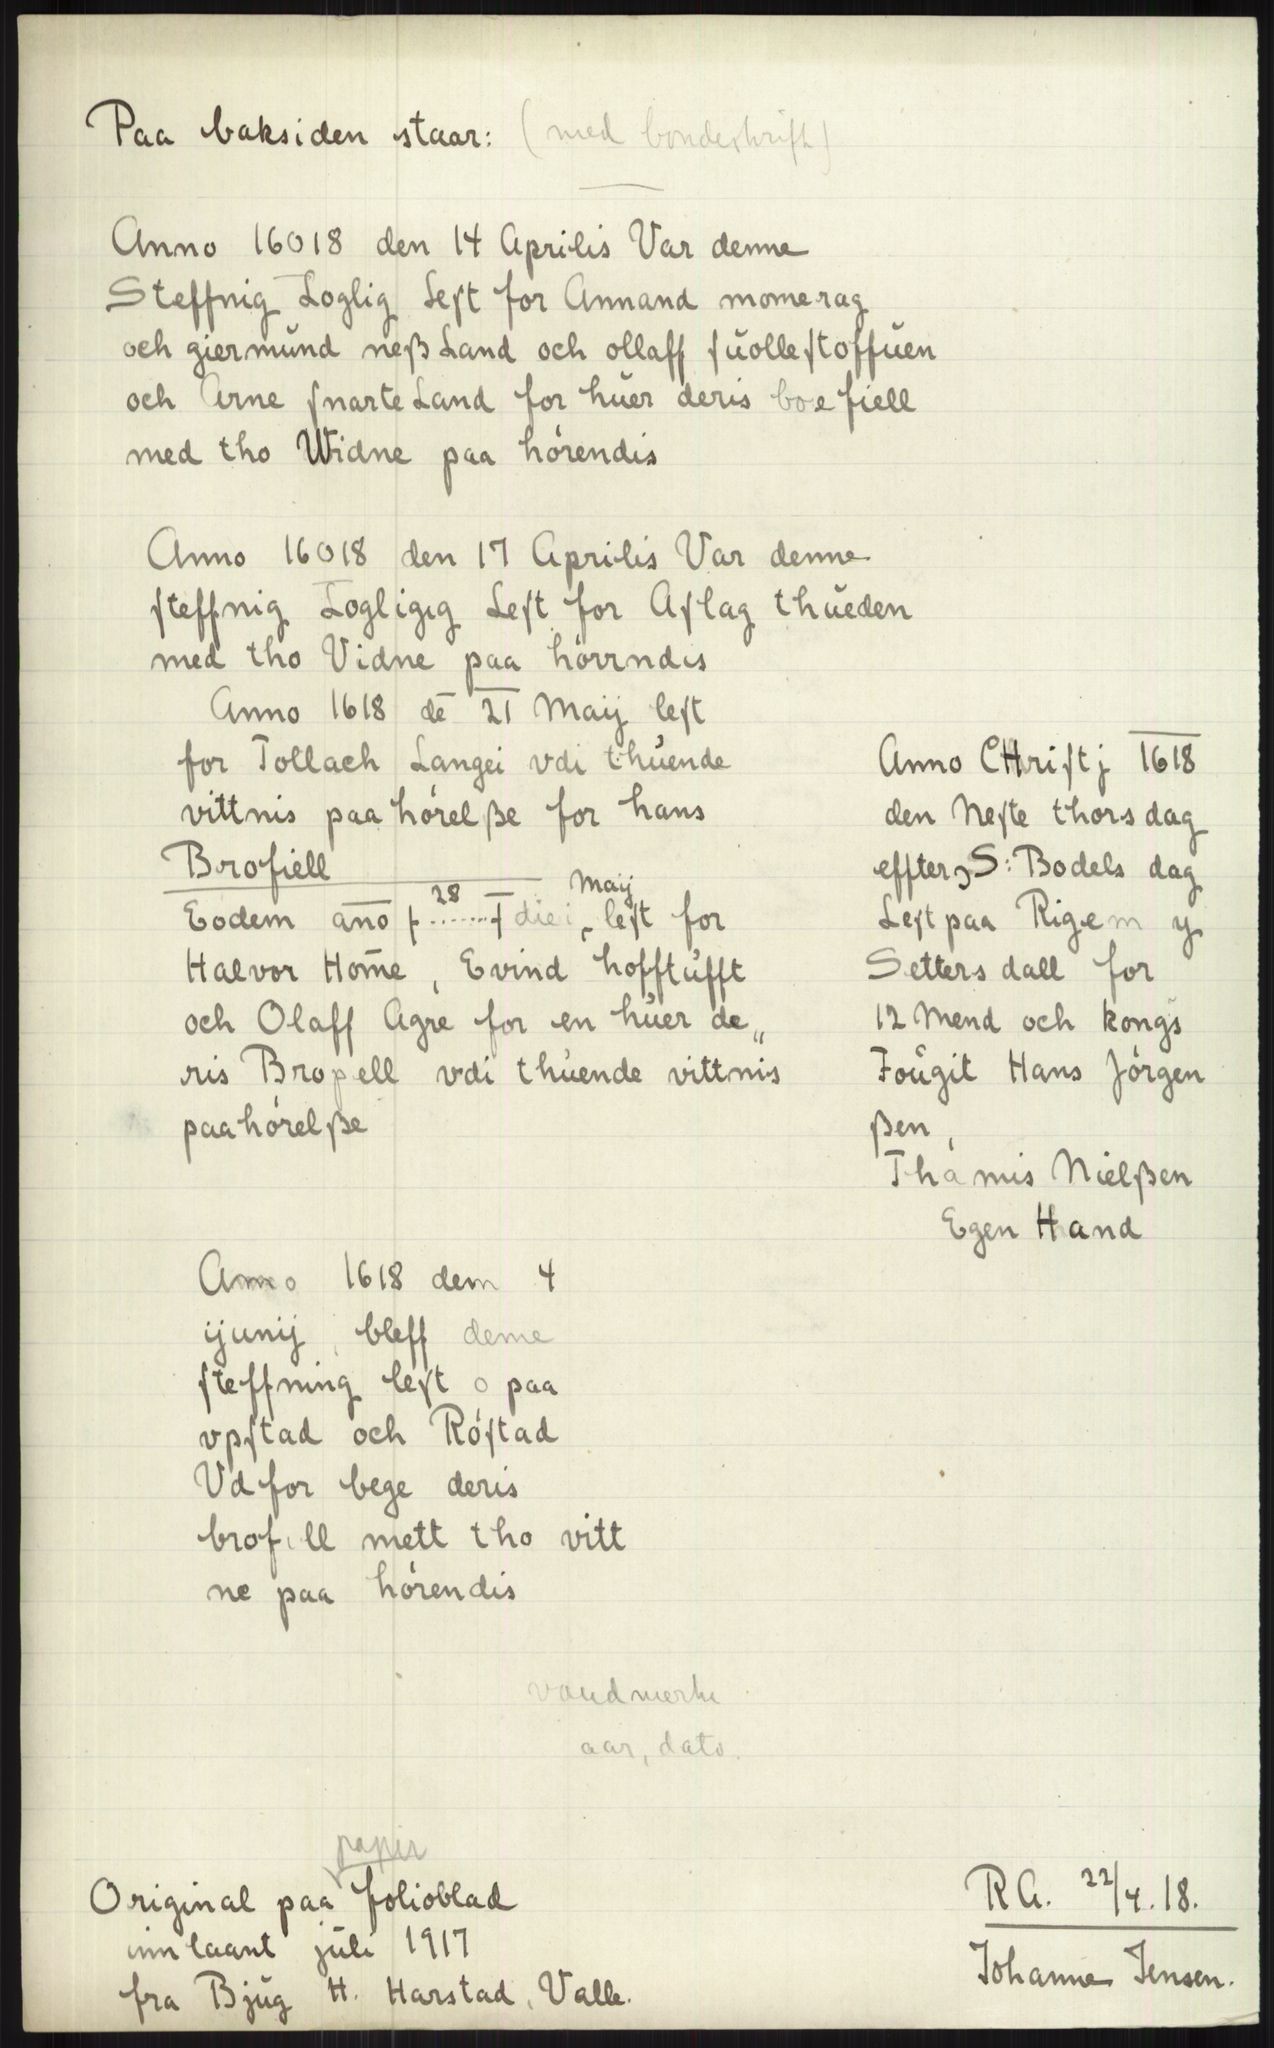 Paa baksiden staar: (med bondeskrift)
Anno 16018 den 14 Aprilis Var denne
Steffnig Loglig Lest for Annand momerag
och giermŭnd neß Land och ollaff sŭollestoffŭen
och Arne snarte Land for hŭer deris boe fiell
med tho Widne paa hórendis
Anno 16018 den 17 Aprilis Var denne
steffnig Logligig Lest for Aslag thŭeden
med tho Vidne paa hórrndis
Anno 1618 dē 21 Maij lest
for Tollach Langei vdi thŭende
vittnis paa hórelße for hans
Brofiell
Eodem año ⨍ ..28.. ⨍ diei Maij lest for
Halvor Hom̄e, Evind hofftŭfft
och Olaff Agre for en hŭer de„
ris Bropell vdi thŭende vittnis
paahórelße
Anno CHristj 1618
den Neste thorsdag
effter S: Bodels dag
Lest paa Rigem y
Setters dall for
12 Mend och kongs
Foŭgit Hans Jórgen
ßen,
Thámis Nielßen
Egen Hand
Anno 1618 dem 4
ijunij bleff denne
steffning lest o paa
vpstad och Róstad
Vd for bege deris
brofill mett tho vitt
ne paa hórendis
vandmerke
aar, dato.
Original paa papir folioblad
innlaant jŭli 1917
fra Bjŭg H. Harstad, Valle.
R A. 22/4. 18.
Johanne Jensen.